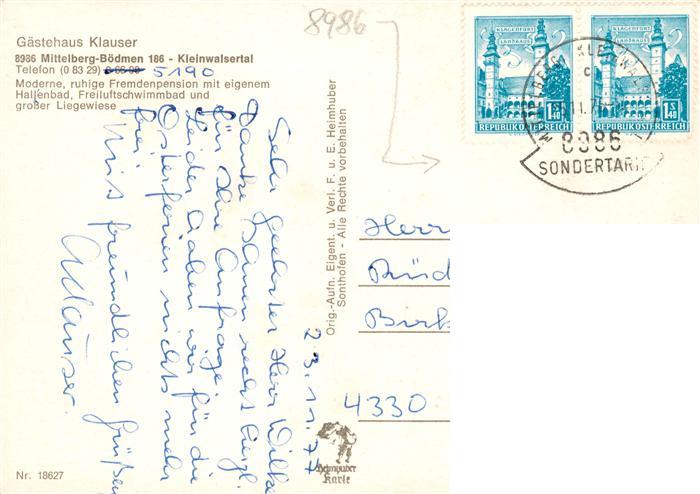 Gästehaus Klauser
8986 Mittelberg-Bödmen 186 - Kleinwalsertal
Telefon (0 83 29) 5190
Moderne, ruhige Fremdenpension mit eigenem
Hallenbad, Freiluftschwimmbad und
großer Liegewiese
Sehr geehrter Herr Wilke
Danke Ihnen recht herzl.
für Ihre Anfrage,
Leider haben wir für die
Osterferien nichts mehr
frei.
Mit freundlichen Grüßen
Klauser.
23.11.77
Nr. 18627
Orig.-Aufn. Eigent. u. Verl. F. u. E. Heimhuber
Sonthofen - Alle Rechte vorbehalten
Heimhuber
Karte
8986
KLAGENFURT
LANDHAUS
1.S40
REPUBLIK ÖSTERREICH
KLAGENFURT
LANDHAUS
1.S40
REPUBLIK ÖSTERREICH
8986
SONDERTARIF
Herr
Rüd
Birk
4330